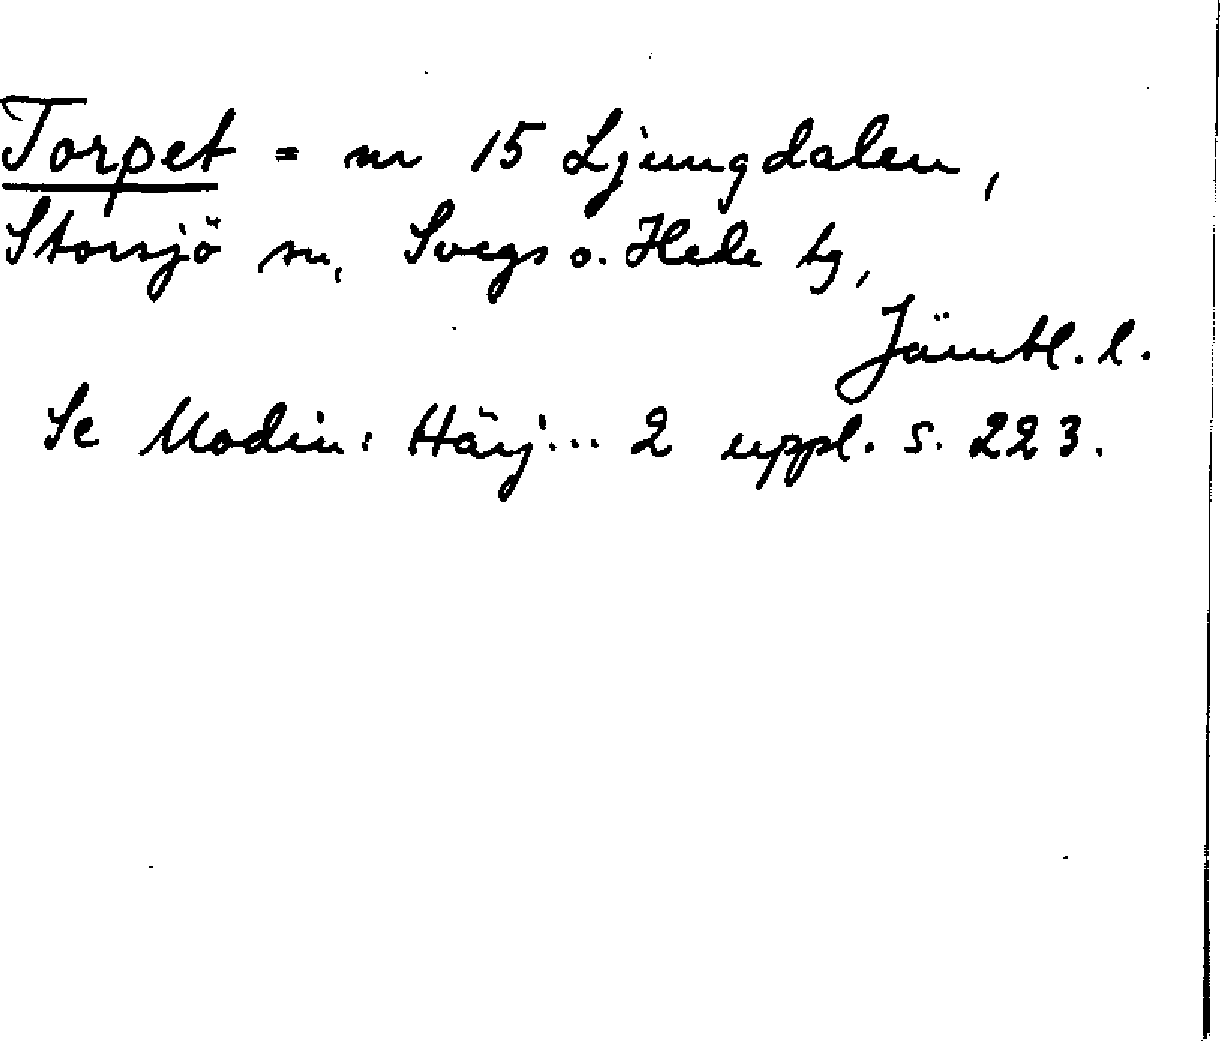 Torpet = nr 15 Ljungdalen,
Storsjö sn, Svegs o. Hede tg,
Jämtl. l.
Se Modin: Härj... 2 uppl. s. 223.